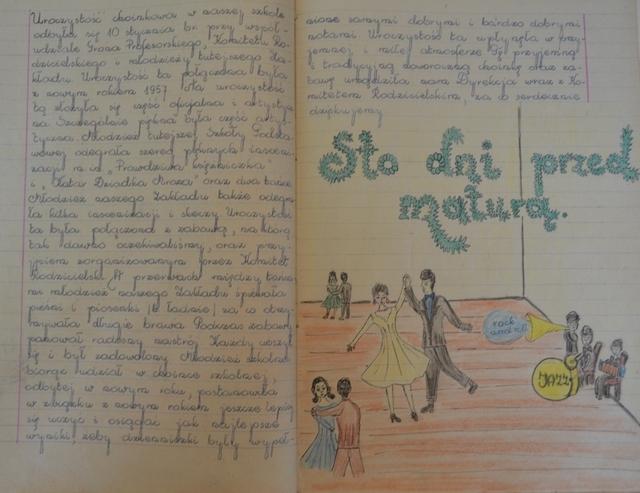 Uroczystość choinkowa w naszej szkole
odbyła się 10 stycznia br. przy współ-
udziale Grona Profesorskiego, Komitetu Ro-
dzicielskiego i młodzieży tutejszego Za-
kładu. Uroczystość ta połączona była
z nowym rokiem 1957. Na uroczystość
tą złożyła się część oficjalna i artystycz-
na. Szczególnie piękna była część arty-
styczna. Młodzież tutejszej Szkoły Podsta-
wowej odegrała szereg pięknych insceni-
zacji m. in. „Prawdziwa księżniczka"
i „Chata Dziadka Mroza" oraz dwa tańce.
Młodzież naszego Zakładu także odegra-
ła kilka inscenizacji i skeczy. Uroczystość
ta była połączona z zabawą, na którą
tak dawno oczekiwaliśmy, oraz przy-
jęciem zorganizowanym przez Komitet
Rodzicielski. W przerwach między tańca-
mi młodzież naszego Zakładu śpiewała
pieśni i piosenki (b. ładnie) za co otrzy-
mywała długie brawa. Podczas zabawy
panował radosny nastrój. Każdy cieszył
się i był zadowolony. Młodzież szkolna
biorąc udział w choince szkolnej,
odbytej w nowym roku, postanowiła
w związku z nowym rokiem jeszcze lepiej
się uczyć i osiągać jak najlepsze
wyniki, żeby dzienniczki były wypeł-
nione samymi dobrymi i bardzo dobrymi
notami. Uroczystość ta upłynęła w przy-
jemnej i miłej atmosferze. Tę przyjemną
i tradycyjną noworoczną choinkę oraz za-
bawę urządziła nam Dyrekcja wraz z Ko-
mitetem Rodzicielskim, za co serdecznie
dziękujemy.
Sto dni przed
maturą.
rock
and roll
JAZZ